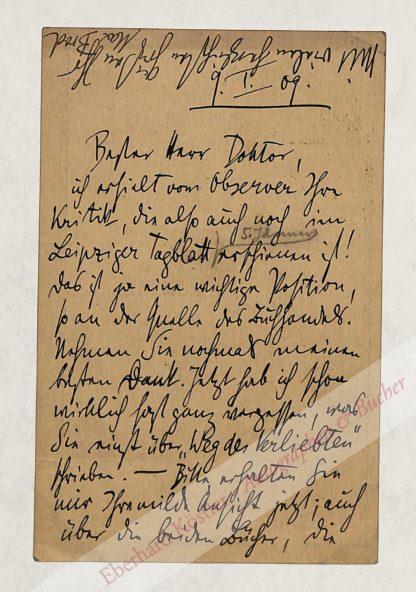 Mit vielen herzlichsten
Grüßen Ihr
Max Brod
9. I. 09.
Bester Herr Doktor,
ich erhielt vom Observer Ihre
Kritik, die also auch noch im
5. Jänner
Leipziger Tagblatt erschienen ist!
Das ist ja eine wichtige Position,
so an der Quelle des Buchhandels.
Nehmen Sie nochmals meinen
besten Dank. Jetzt hab ich schon
wirklich fast ganz vergessen, was
Sie einst über „Weg des Verliebten"
schrieben. — Bitte erhalten Sie
mir Ihre milde Ansicht jetzt; auch
über die beiden Bücher, die
Eberhard Köstler Autographen & Bücher